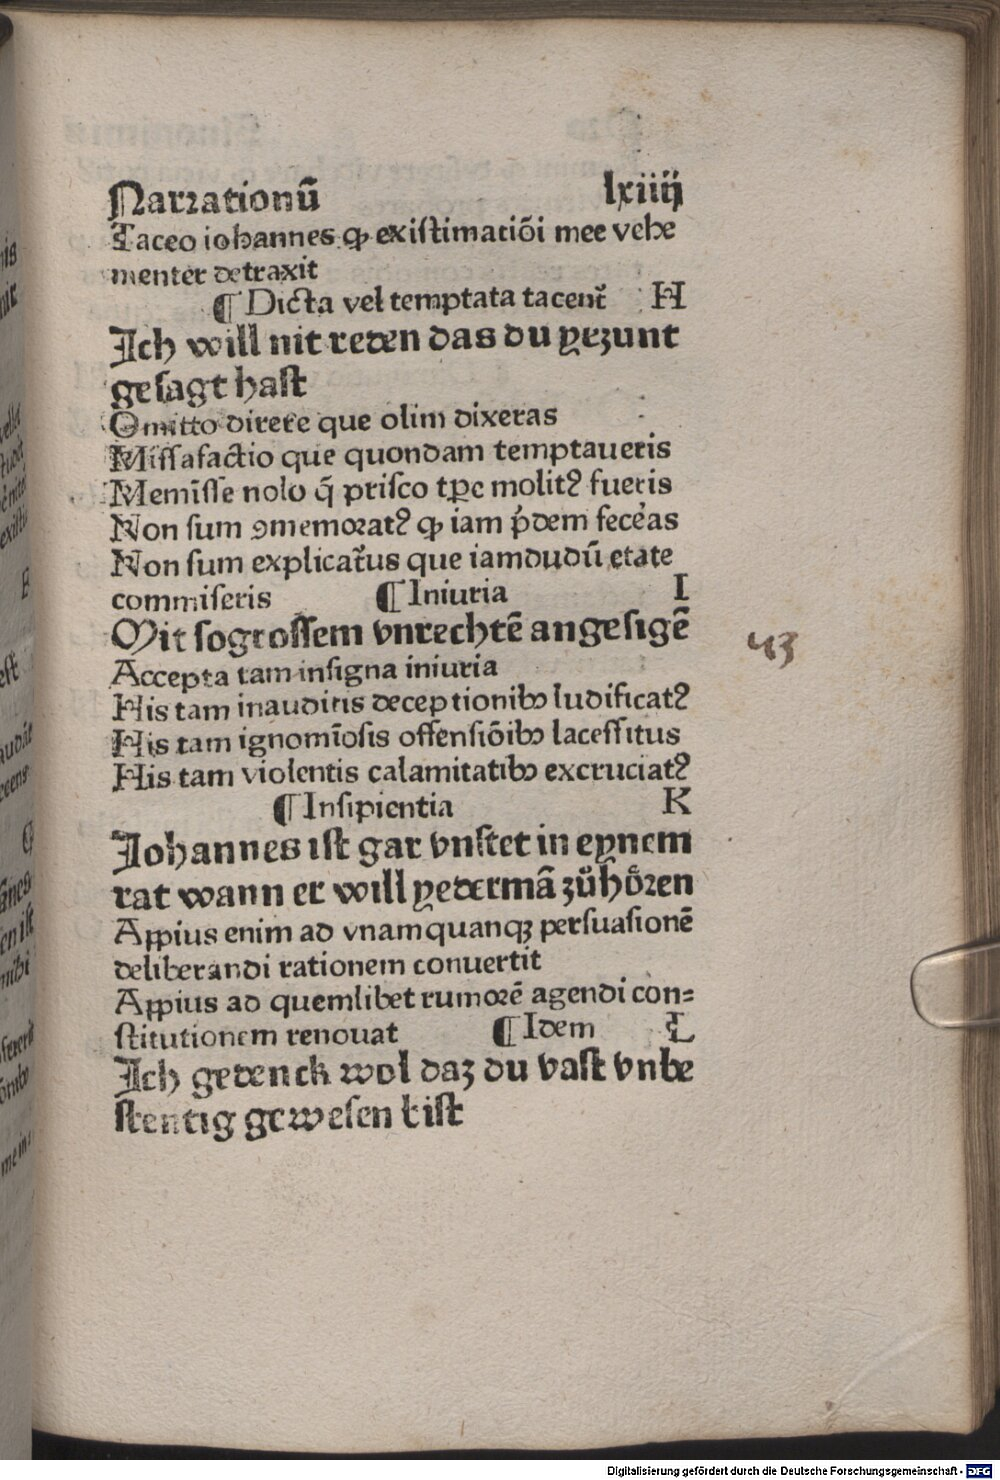 Narrationū lxiiij
Taceo iohannes ꝙ existimatiōi mee vehe
menter detraxit
¶ Dicta vel temptata tacent̄ H
Ich will nit reden das du yezunt
gesagt hast
Omitto direre que olim dixeras
Missafactio que quondam temptaueris
Memīsse nolo q̄ prisco tꝑe molitꝰ fueris
Non sum ꝯmemoratꝰ ꝙ iam p̄dem fece᷑as
Non sum explicat᷑us que iamdudū etate
commiseris ¶ Iniuria I
Mit sogrossem vnrechtē angesigē
Accepta tam insigna iniuria
His tam inauditis deceptionibꝫ ludificatꝰ
His tam ignomīosis offensiōibꝫ lacessitus
His tam violentis calamitatibꝫ excruciatꝰ
¶ Insipientia K
Johannes ist gar vnstet in eynem
rat wann er will yedermā zůhören
Appius enim ad vnamquanqꝫ persuasionē
deliberandi rationem conuertit
Appius ad quemlibet rumorē agendi con⸗
stitutionem renouat ¶ Idem L
Ich gedenck wol daz du vast vnbe
stentig gewesen bist
43
Digitalisierung gefördert durch die Deutsche Forschungsgemeinschaft - DFG